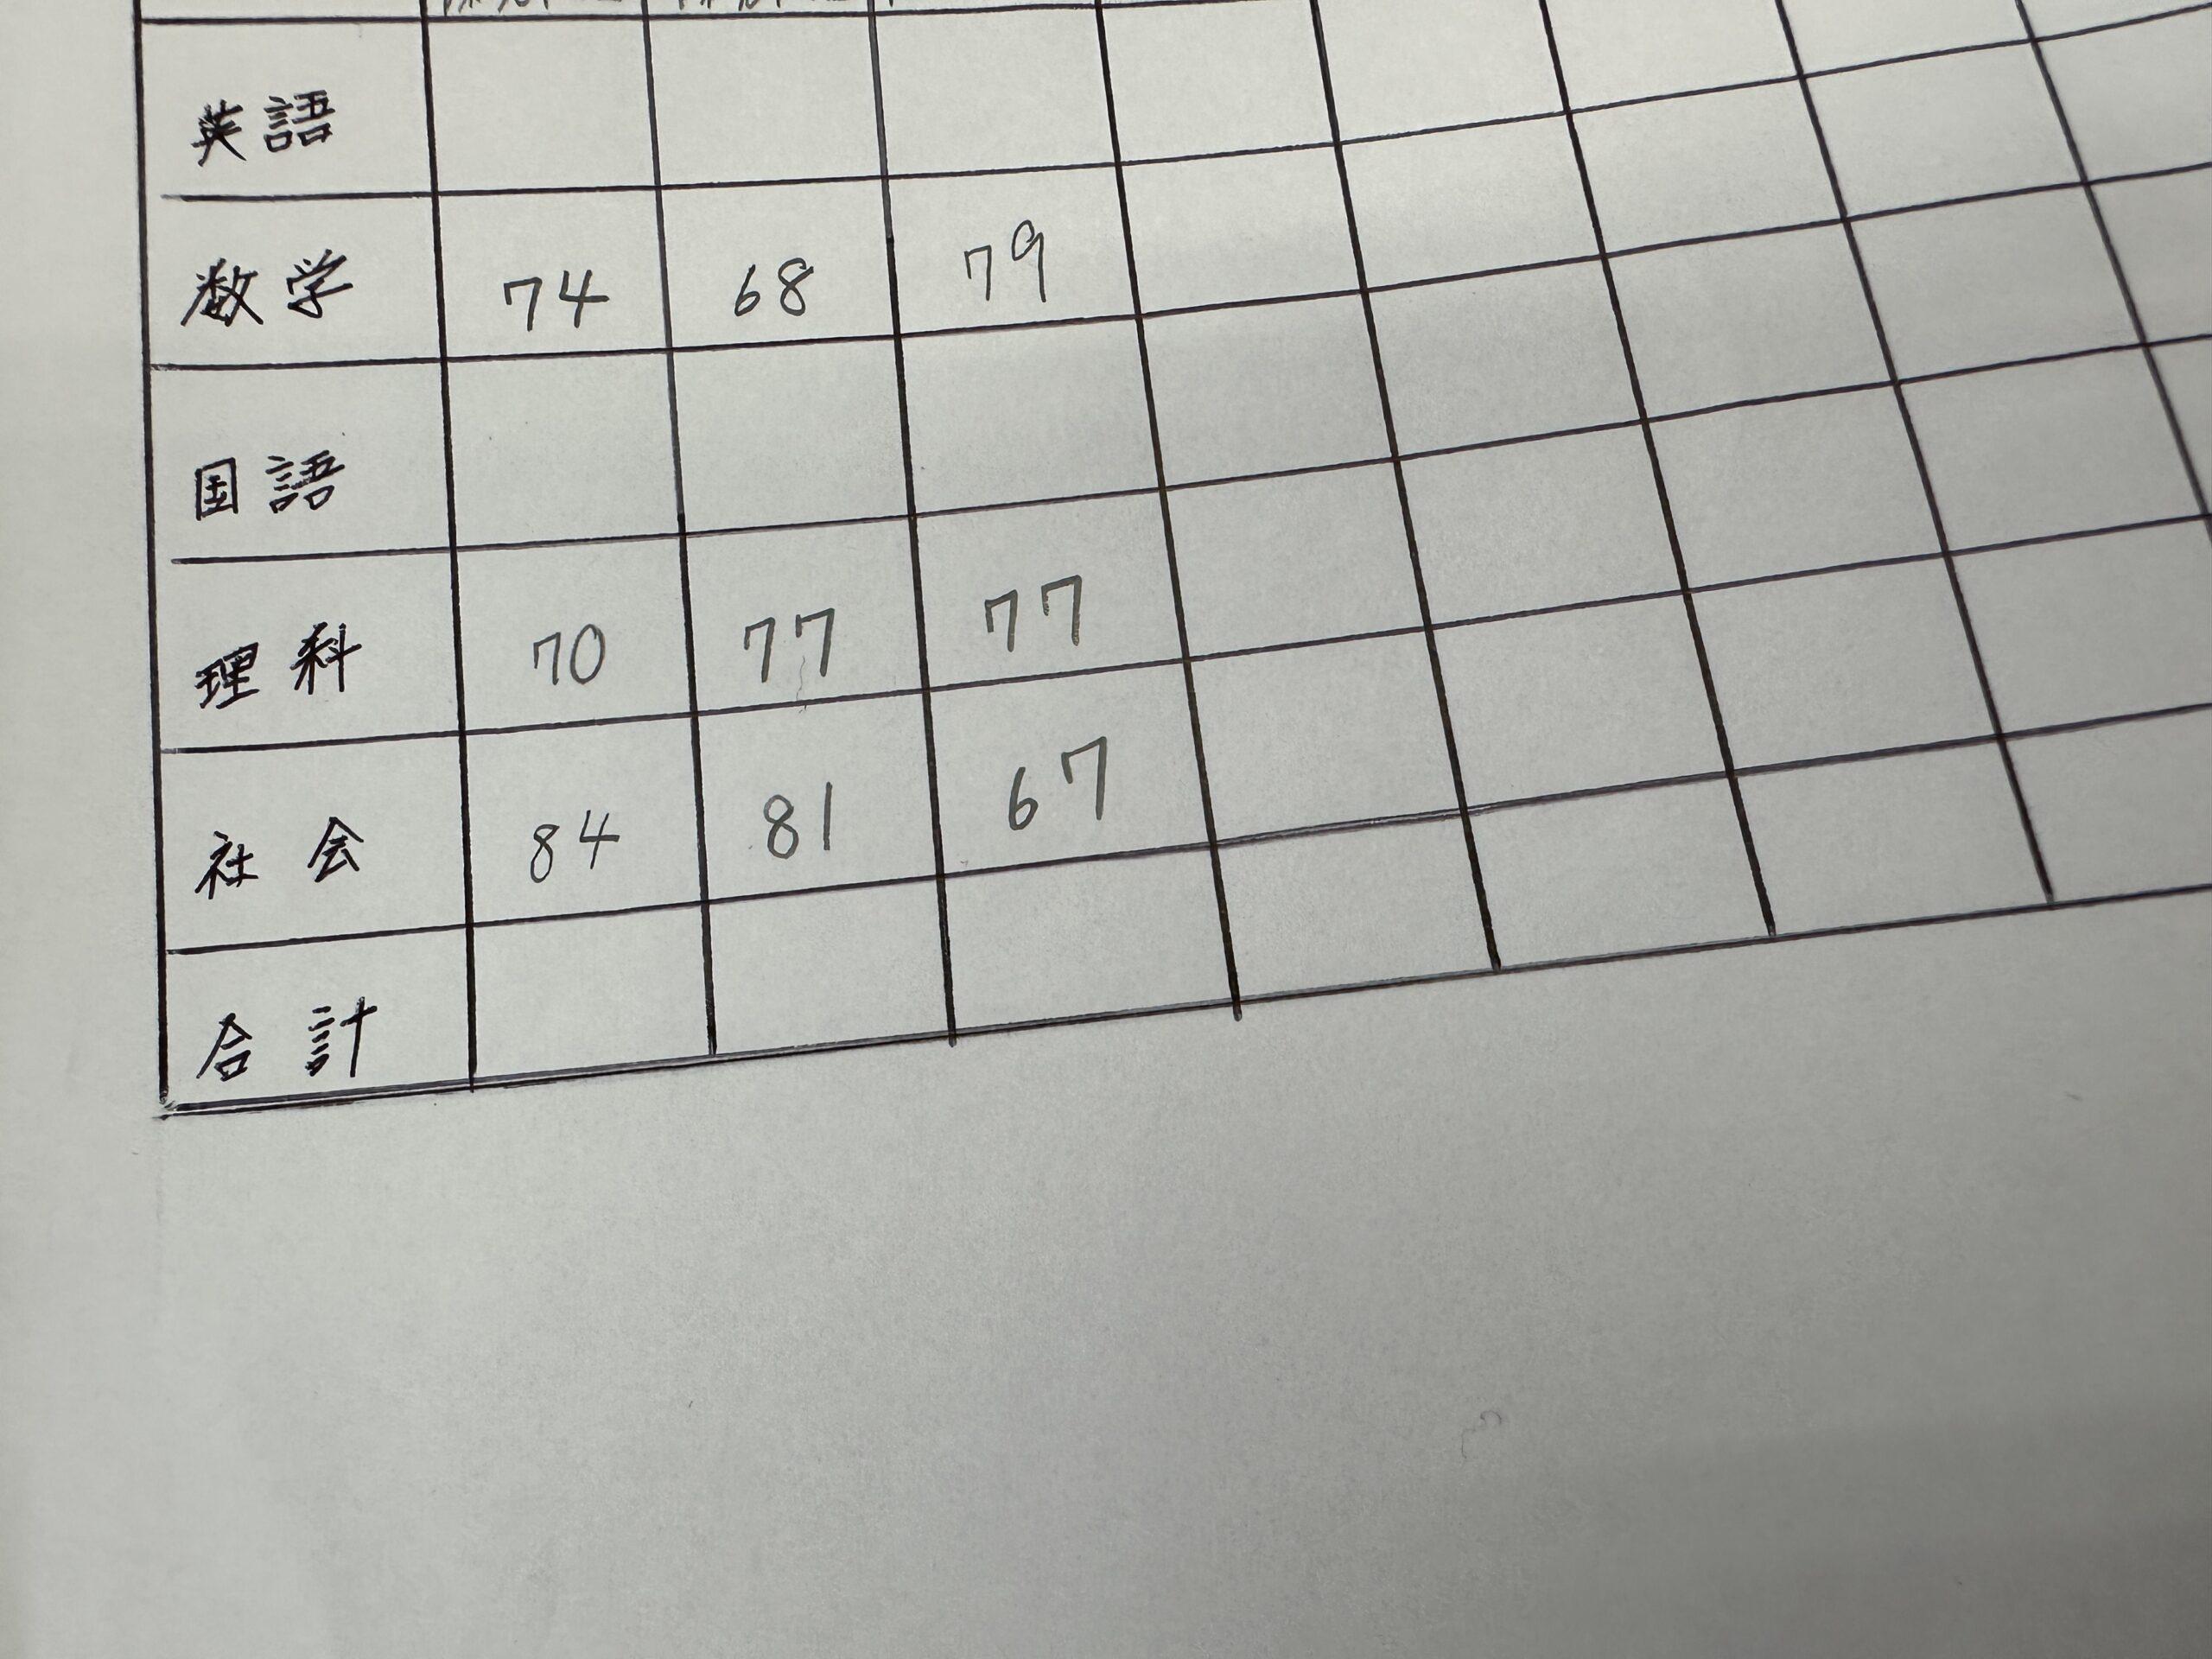 英語
数学 74 68 79
国語
理科 70 77 77
社会 84 81 67
合計